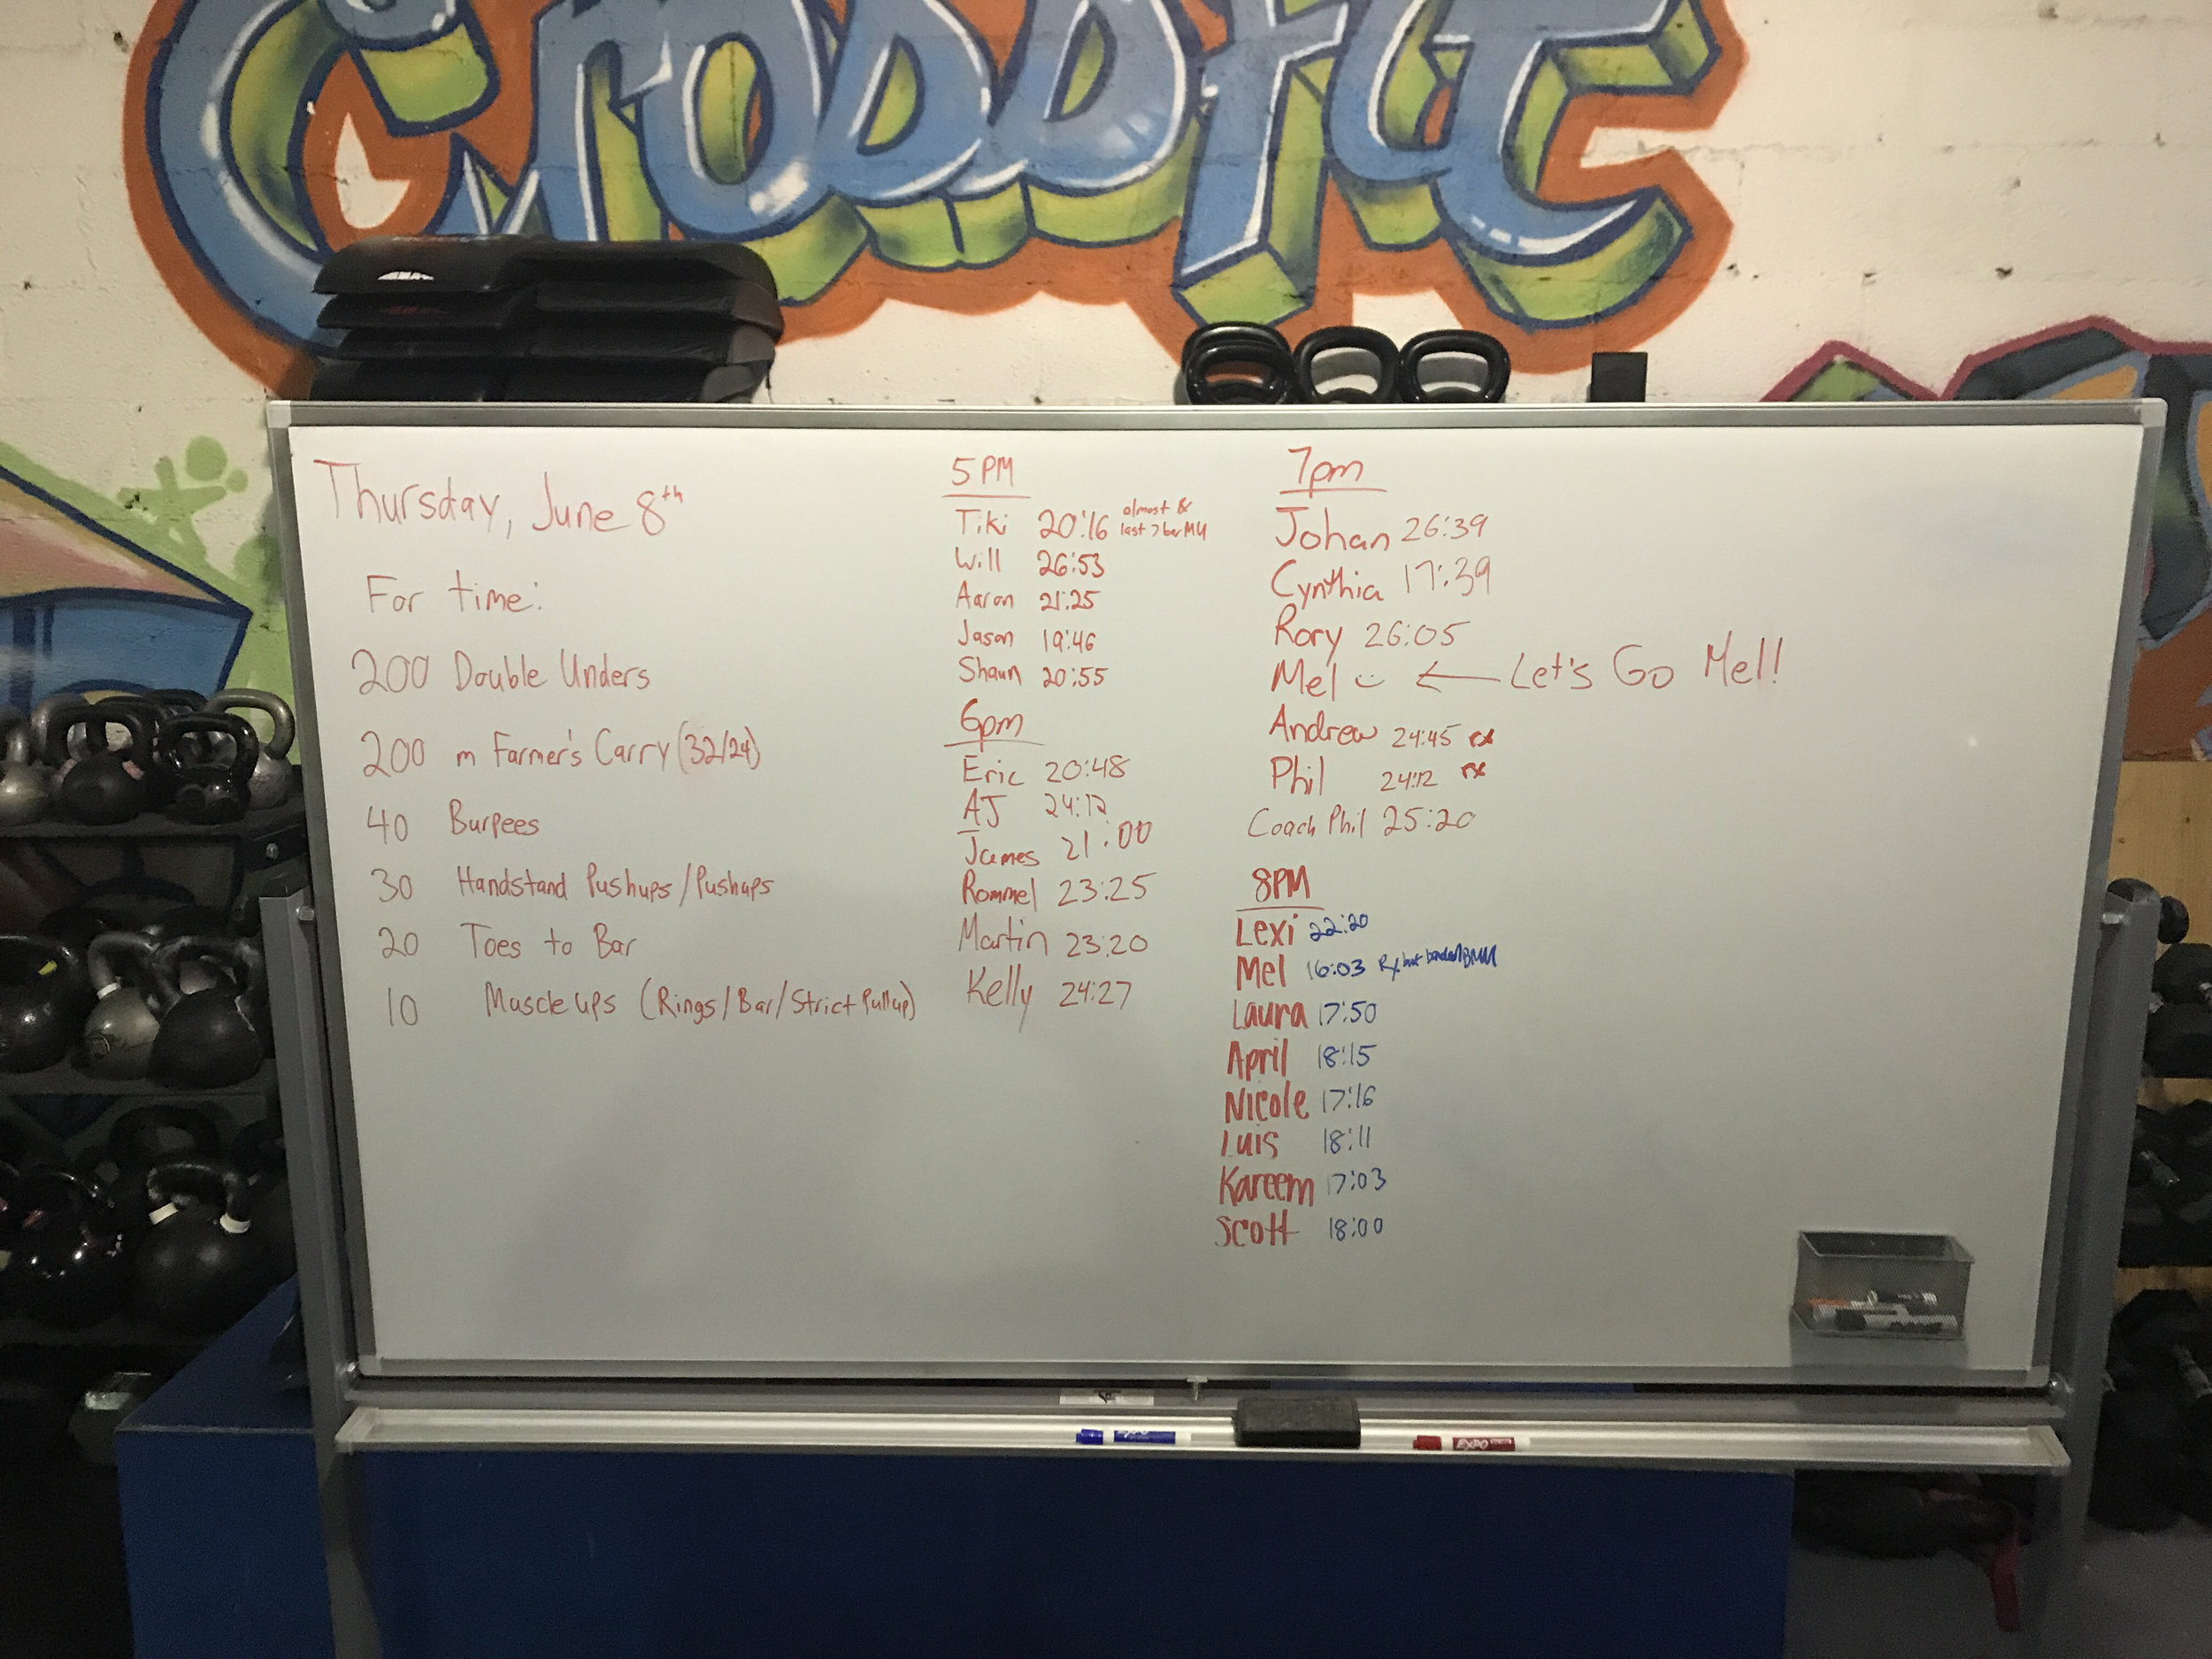 CrossFit
Thursday, June 8th
For time:
200 Double Unders
200 m Farmer's Carry (32/24)
40 Burpees
30 Handstand Pushups/Pushups
20 Toes to Bar
10 Muscle ups (Rings/Bar/Strict Pullup)
5 PM
Tiki 20:16 almost Rx
last 7 bar MU
Will 26:53
Aaron 21:25
Jason 19:46
Shaun 20:55
6pm
Eric 20:48
AJ 24:12
James 21:00
Rommel 23:25
Martin 23:20
Kelly 24:27
7pm
Johan 26:39
Cynthia 17:39
Rory 26:05
Mel ← Let's Go Mel!
Andrew 24:45 rx
Phil 24:12 rx
Coach Phil 25:20
8PM
Lexi 22:20
Mel 16:03 Rx but banded BMU
Laura 17:50
April 18:15
Nicole 17:16
Luis 18:11
Kareem 17:03
Scott 18:00
EXPO
EXPO